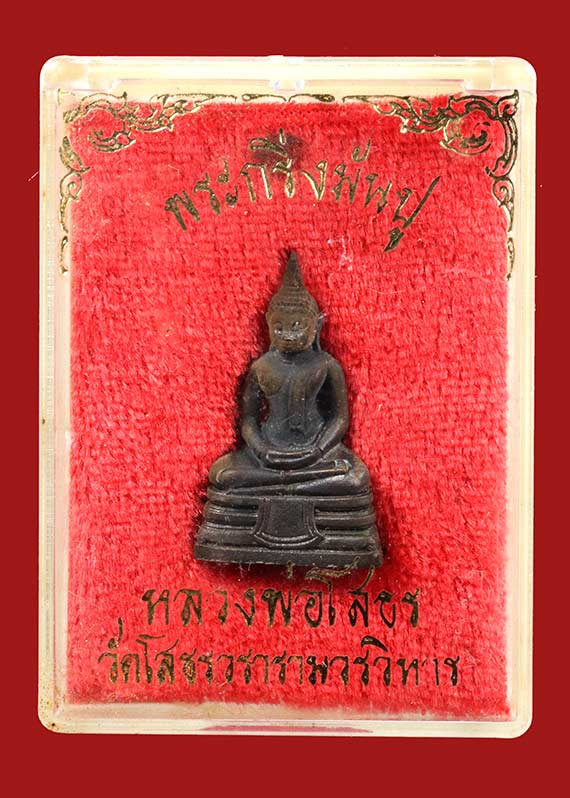 พระกริ่งมันปู
หลวงพ่อโสธร
วัดโสธรวรารามวรวิหาร